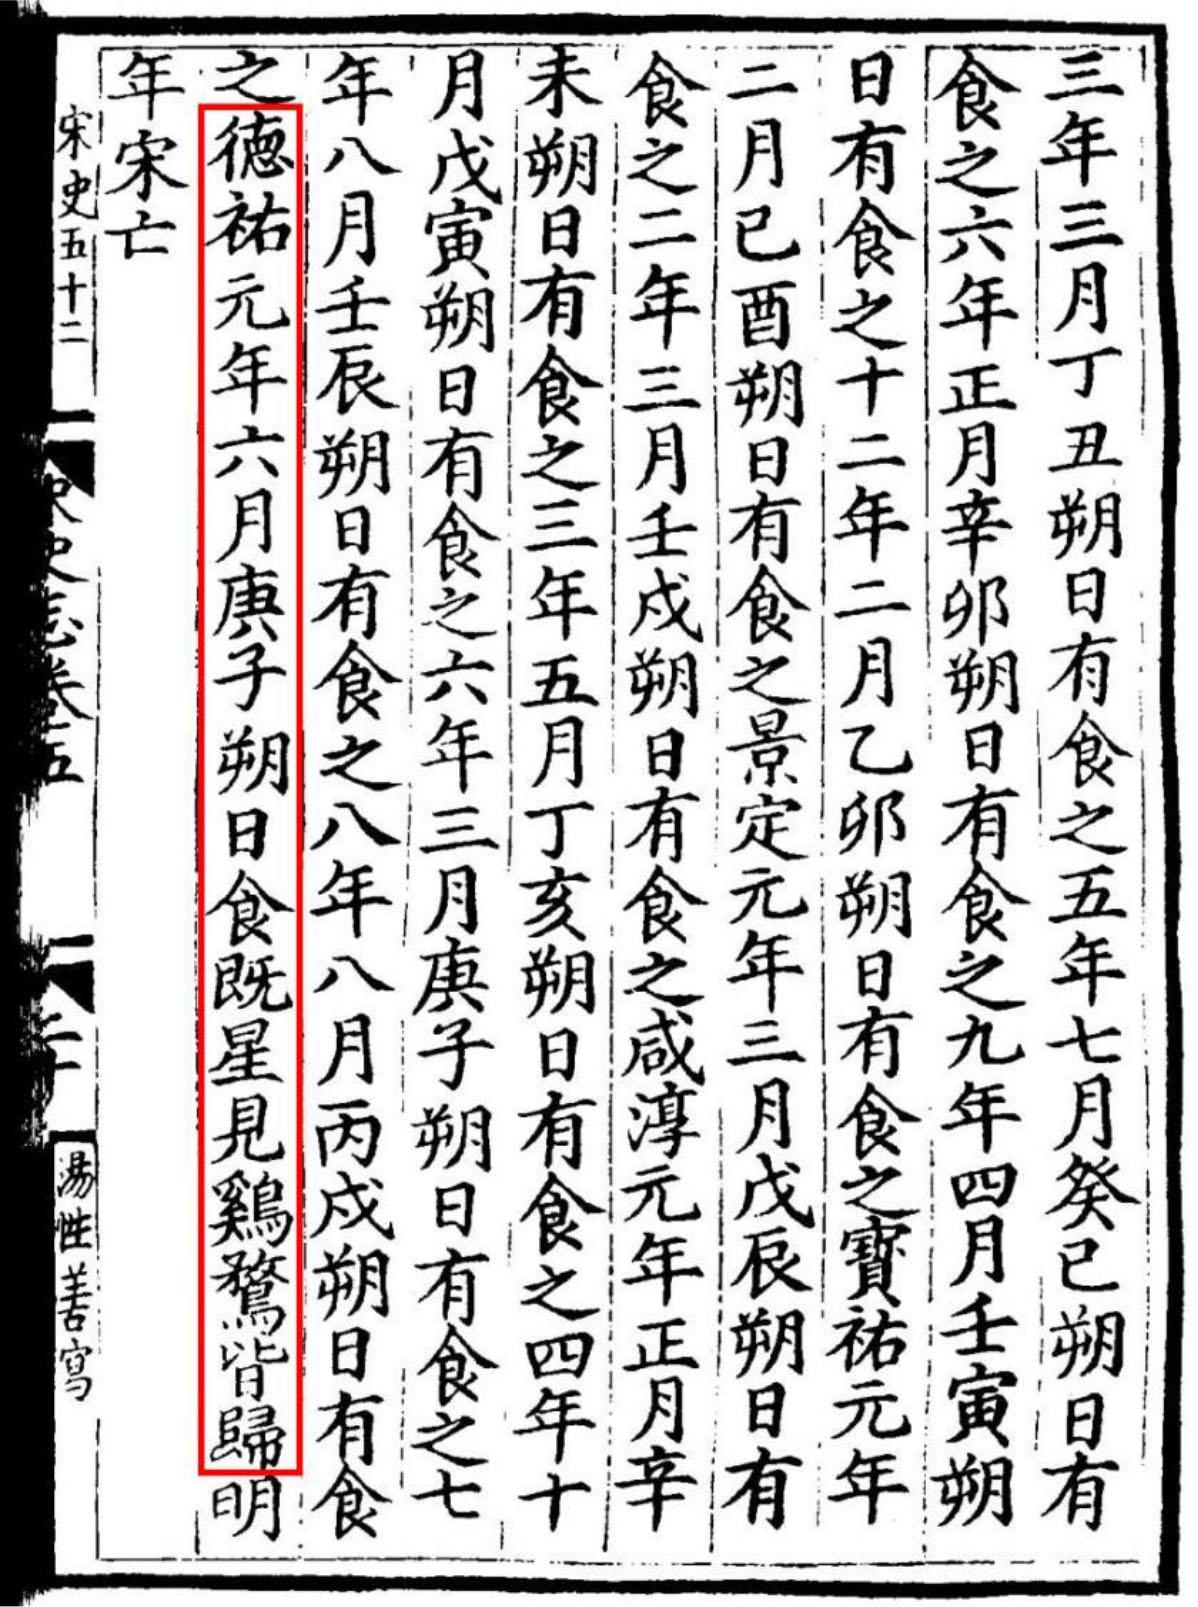 三年三月丁丑朔日有食之五年七月癸巳朔日有
食之六年正月辛卯朔日有食之九年四月壬寅朔
日有食之十二年二月乙卯朔日有食之寳祐元年
二月己酉朔日有食之景定元年三月戊辰朔日有
食之二年三月壬戌朔日有食之咸淳元年正月辛
未朔日有食之三年五月丁亥朔日有食之四年十
月戊寅朔日有食之六年三月庚子朔日有食之七
年八月壬辰朔日有食之八年八月丙戌朔日有食
之德祐元年六月庚子朔日食既星見鷄鶩皆歸明
年宋亡
宋史五十二
宋史志卷五
二十
湯性善寫